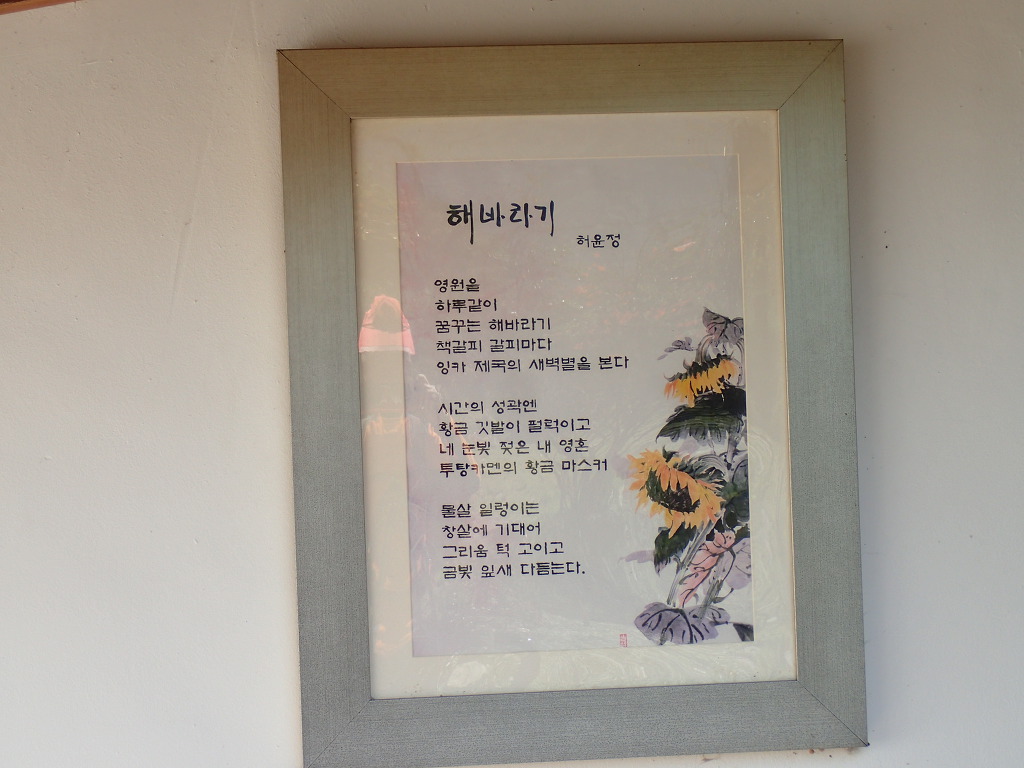 해바라기
허윤정
영원을
하루같이
꿈꾸는 해바라기
책갈피 갈피마다
잉카 제국의 새벽별을 본다
시간의 성곽엔
황금 깃발이 펄럭이고
네 눈빛 젖은 내 영혼
투탕카멘의 황금 마스커
물살 일렁이는
창살에 기대어
그리움 턱 고이고
금빛 잎새 다듬는다.